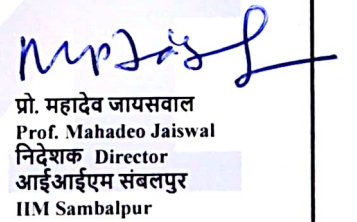 प्रो. महादेव जायसवाल
Prof. Mahadeo Jaiswal
निदेशक Director
आईआईएम संबलपुर
IIM Sambalpur